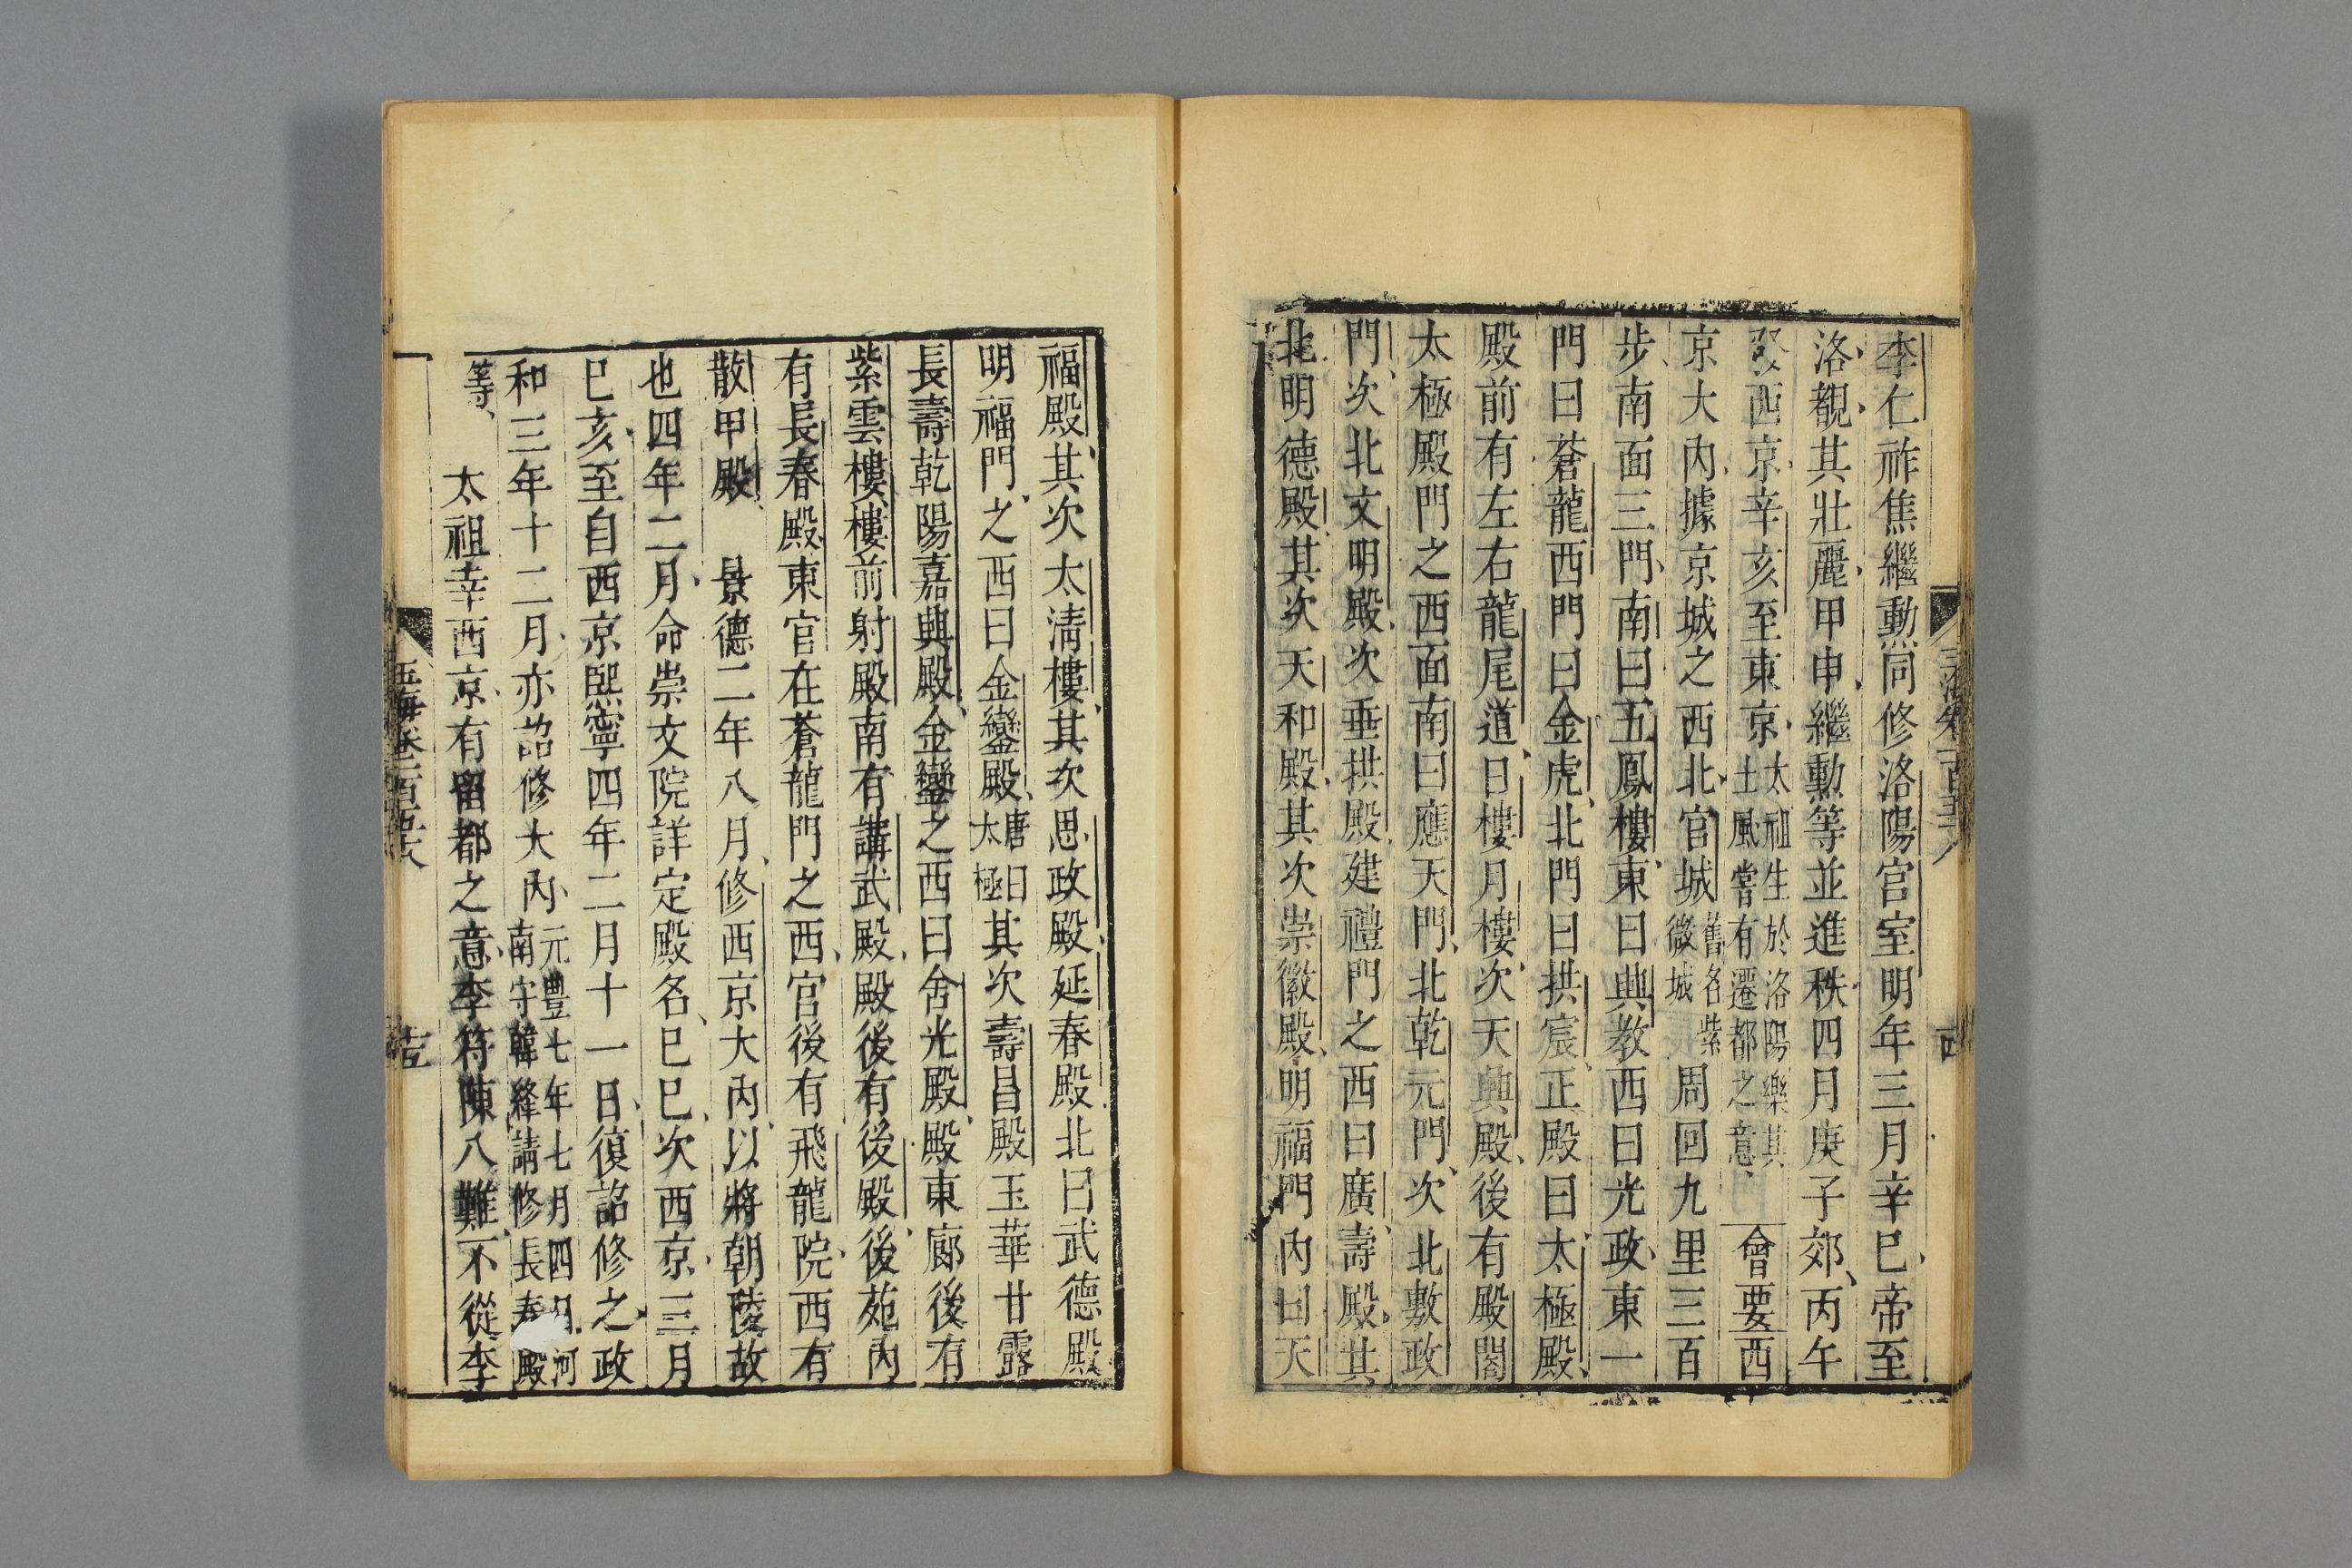 李仁祚焦繼勳同修洛陽宫室明年三月辛巳帝至
洛觀其壯麗甲申繼勳等並進秩四月庚子郊丙午
發西京辛亥至東京太祖生於洛陽樂其土風嘗有遷都之意會要西
京大内據京城之西北宫城舊名紫微城周回九里三百
步南面三門南曰五鳳樓東曰興教西曰光政東一
門曰蒼龍西門曰金虎北門曰拱宸正殿曰太極殿
殿前有左右龍尾道日樓月樓次天興殿後有殿閣
太極殿門之西面南曰應天門北乾元門次北敷政
門次北文明殿次垂拱殿建禮門之西曰廣壽殿其
北明德殿其次天和殿其次崇徽殿明福門内曰天
福殿其次太清樓其次思政殿延春殿北曰武德殿
明福門之西曰金鑾殿唐曰太極其次壽昌殿玉華甘露
長壽乾陽嘉興殿金鑾之西曰含光殿殿東廊後有
紫雲樓樓前射殿南有講武殿殿後有後殿後苑内
有長春殿東宫在蒼龍門之西宫後有飛龍院西有
散甲殿 景德二年八月修西京大内以將朝陵故
也四年二月命崇文院詳定殿名巳巳次西京三月
巳亥至自西京熙寧四年二月十一日復詔修之政
和三年十二月亦詔修大内元豐七年七月四日河南守韓絳請修長春殿
等
太祖幸西京有留都之意李符陳八難不從李
玉海卷一百五十八